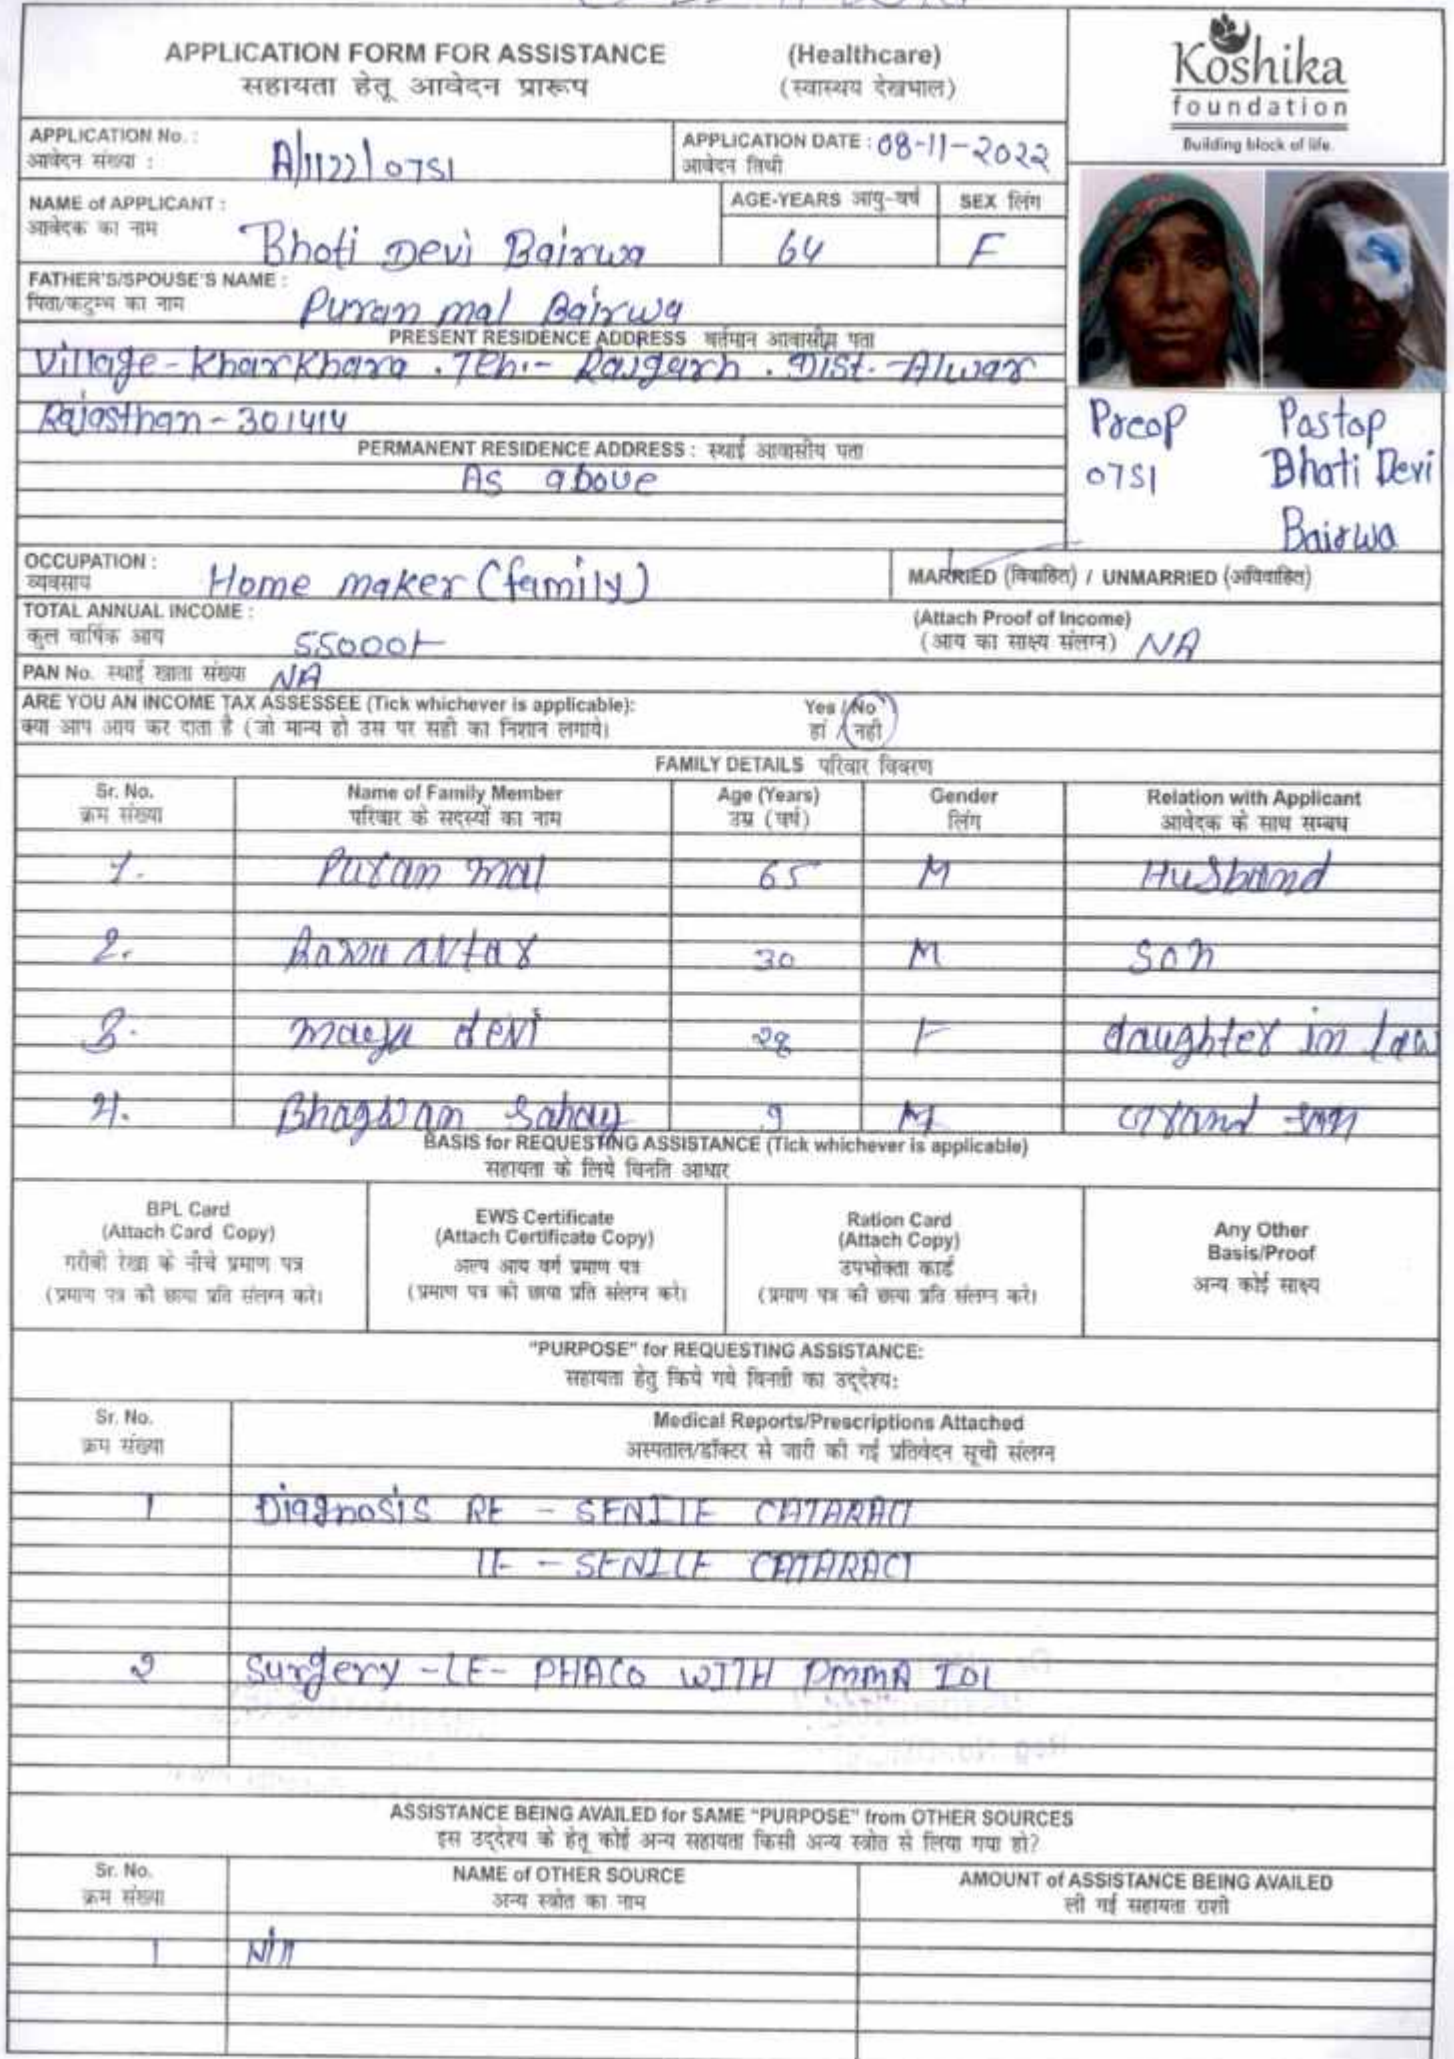 APPLICATION FORM FOR ASSISTANCE (Healthcare)
सहायता हेतू आवेदन प्रारूप (स्वास्थय देखभाल)
Koshika
foundation
Building block of life.
APPLICATION No. : A/1122/0751
आवेदन संख्या :
APPLICATION DATE : 08-11-2022
आवेदन तिथी
NAME of APPLICANT :
आवेदक का नाम Bhoti Devi Bairwa
AGE-YEARS आयु-वर्ष 64
SEX लिंग F
FATHER'S/SPOUSE'S NAME :
पिता/कटुम्भ का नाम Puran mal Bairwa
PRESENT RESIDENCE ADDRESS वर्तमान आवासीय पता
Village-Kharkhara . Teh.- Rajgarh . Dist.-Alwar
Rajasthan-301414
PERMANENT RESIDENCE ADDRESS : स्थाई आवासीय पता
As above
Preop Postop
0751 Bhati Devi
Bairwa
OCCUPATION :
व्यवसाय Home maker (family)
MARRIED (विवाहित) / UNMARRIED (अविवाहित)
TOTAL ANNUAL INCOME :
कुल वार्षिक आय 55000/-
(Attach Proof of Income)
(आय का साक्ष्य संलग्न) NA
PAN No. स्थाई खाता संख्या NA
ARE YOU AN INCOME TAX ASSESSEE (Tick whichever is applicable): Yes / No
क्या आप आय कर दाता है (जो मान्य हो उस पर सही का निशान लगाये। हां / नही
FAMILY DETAILS परिवार विवरण
Sr. No. Name of Family Member Age (Years) Gender Relation with Applicant
क्रम संख्या परिवार के सदस्यों का नाम उम्र (वर्ष) लिंग आवेदक के साथ सम्बध
1. Puran mal 65 M Husband
2. avtar 30 M Son
3. devi 28 F daughter in law
4. Bhagwan Sahay 9 M Grand son
BASIS for REQUESTING ASSISTANCE (Tick whichever is applicable)
सहायता के लिये विनति आधार
BPL Card
(Attach Card Copy)
गरीबी रेखा के नीचे प्रमाण पत्र
(प्रमाण पत्र की छाया प्रति संलग्न करे।
EWS Certificate
(Attach Certificate Copy)
अल्प आय वर्ग प्रमाण पत्र
(प्रमाण पत्र की छाया प्रति संलग्न करे।
Ration Card
(Attach Copy)
उपभोक्ता कार्ड
(प्रमाण पत्र की छाया प्रति संलग्न करे।
Any Other
Basis/Proof
अन्य कोई साक्ष्य
"PURPOSE" for REQUESTING ASSISTANCE:
सहायता हेतु किये गये विनती का उद्देश्य:
Sr. No. Medical Reports/Prescriptions Attached
क्रम संख्या अस्पताल/डॉक्टर से जारी की गई प्रतिवेदन सूची संलग्न
1 Diagnosis RE - SENILE CATARACT
LE - SENILE CATARACT
2 Surgery -LE- PHACO WITH PMMA IOL
ASSISTANCE BEING AVAILED for SAME "PURPOSE" from OTHER SOURCES
इस उद्देश्य के हेतू कोई अन्य सहायता किसी अन्य स्त्रोत से लिया गया हो?
Sr. No. NAME of OTHER SOURCE AMOUNT of ASSISTANCE BEING AVAILED
क्रम संख्या अन्य स्त्रोत का नाम ली गई सहायता राशी
1 Nill